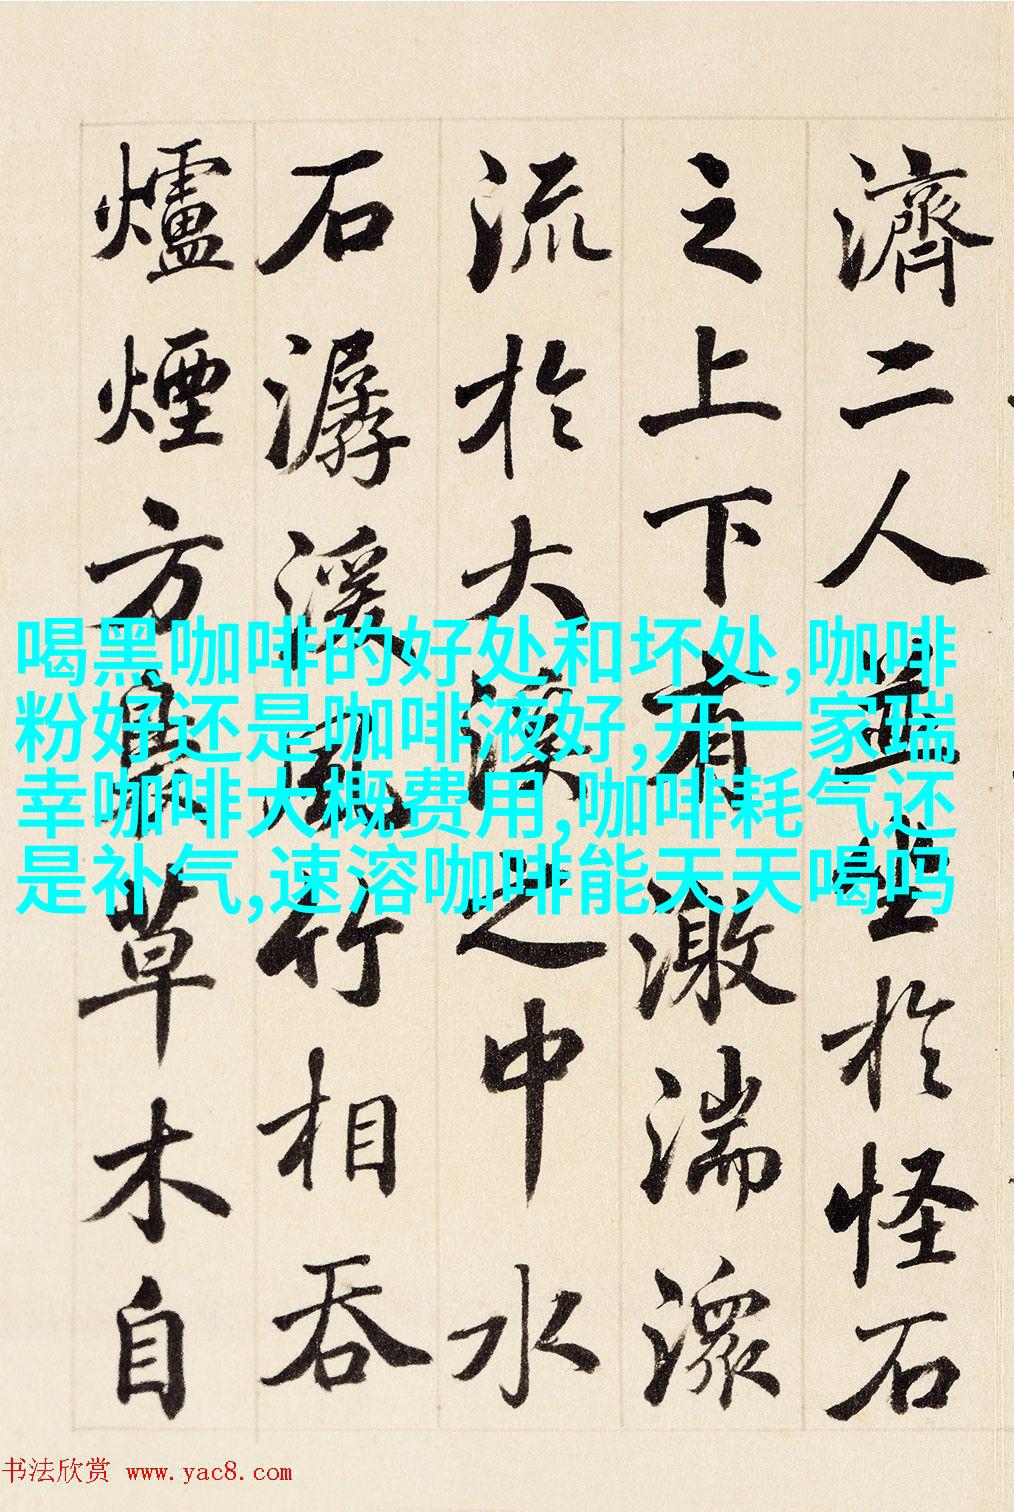 濟二人並坐於怪石
之上下有激湍潀
流於大溪之中水
石潺溪風竹相吞
爐煙方裊草木自
喝黑咖啡的好处和坏处,咖啡
粉好还是咖啡液好,开一家瑞
幸咖啡大概费用,咖啡耗气还
是补气,速溶咖啡能天天喝吗
书法欣赏 www.yac8.com